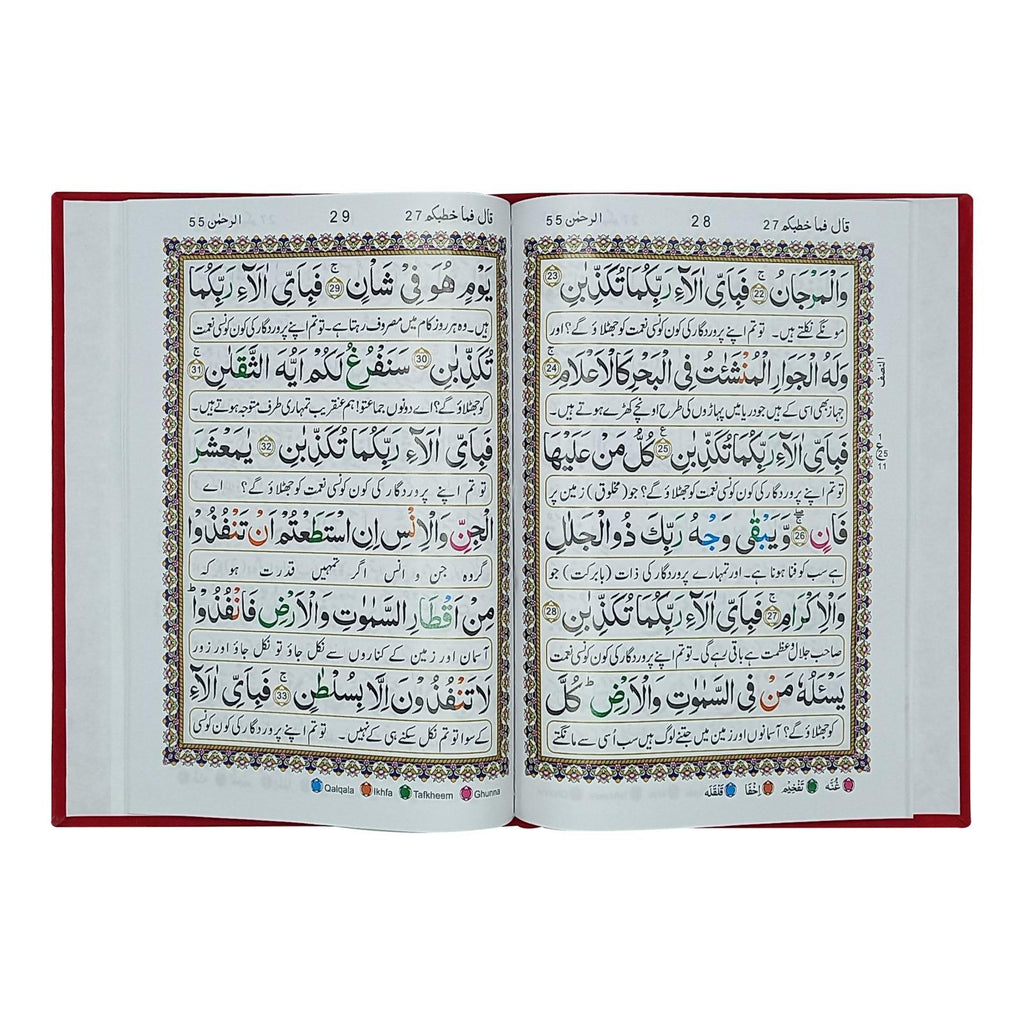 قال فما خطبکم 27 28 الرحمٰن 55
وَالْمَرْجَانُ ۚ 22 فَبِاَىِّ اٰلَآءِ رَبِّكُمَا تُكَذِّبٰنِ 23
مونگے نکلتے ہیں۔ تو تم اپنے پروردگار کی کون کونسی نعمت کو جھٹلاؤ گے؟ اور
وَلَهُ الْجَوَارِ الْمُنْشَئٰتُ فِى الْبَحْرِ كَالْاَعْلَامِ ۚ 24
جہاز بھی اسی کے ہیں جو دریا میں پہاڑوں کی طرح اونچے کھڑے ہوتے ہیں۔
فَبِاَىِّ اٰلَآءِ رَبِّكُمَا تُكَذِّبٰنِ ع 25 كُلُّ مَنْ عَلَيْهَا
تو تم اپنے پروردگار کی کون کونسی نعمت کو جھٹلاؤ گے؟ جو (مخلوق) زمین پر
فَانٍ 26 وَّيَبْقٰى وَجْهُ رَبِّكَ ذُو الْجَلٰلِ
ہے سب کو فنا ہونا ہے۔ اور تمہارے پروردگار کی ذات (بابرکت) جو
وَالْاِكْرَامِ ۚ 27 فَبِاَىِّ اٰلَآءِ رَبِّكُمَا تُكَذِّبٰنِ 28
صاحب جلال و عظمت ہے باقی رہے گی۔ تو تم اپنے پروردگار کی کون کونسی نعمت
يَسْئَلُهٗ مَنْ فِى السَّمٰوٰتِ وَالْاَرْضِ ؕ كُلَّ
کو جھٹلاؤ گے؟ آسمانوں اور زمین میں جتنے لوگ ہیں سب اُسی سے مانگتے
غُنَّه تَفْخِيْم اِخْفَا قَلْقَلَه
النصف
1
ع 25
11
قال فما خطبکم 27 29 الرحمٰن 55
يَوْمٍ هُوَ فِىْ شَاْنٍ ۚ 29 فَبِاَىِّ اٰلَآءِ رَبِّكُمَا
ہیں۔ وہ ہر روز کام میں مصروف رہتا ہے۔ تو تم اپنے پروردگار کی کون کونسی نعمت
تُكَذِّبٰنِ 30 سَنَفْرُغُ لَكُمْ اَيُّهَ الثَّقَلٰنِ ۚ 31
کو جھٹلاؤ گے؟ اے دونوں جماعتو! ہم عنقریب تمہاری طرف متوجہ ہوتے ہیں۔
فَبِاَىِّ اٰلَآءِ رَبِّكُمَا تُكَذِّبٰنِ 32 يٰمَعْشَرَ
تو تم اپنے پروردگار کی کون کونسی نعمت کو جھٹلاؤ گے؟ اے
الْجِنِّ وَالْاِنْسِ اِنِ اسْتَطَعْتُمْ اَنْ تَنْفُذُوْا
گروہ جن و انس اگر تمہیں قدرت ہو کہ
مِنْ اَقْطَارِ السَّمٰوٰتِ وَالْاَرْضِ فَانْفُذُوْا ؕ
آسمان اور زمین کے کناروں سے نکل جاؤ تو نکل جاؤ اور زور
لَا تَنْفُذُوْنَ اِلَّا بِسُلْطٰنٍ ۚ 33 فَبِاَىِّ اٰلَآءِ
کے سوا تو تم نکل سکنے ہی کے نہیں۔ تو تم اپنے پروردگار کی کون کونسی
Qalqala Ikhfa Tafkheem Ghunna